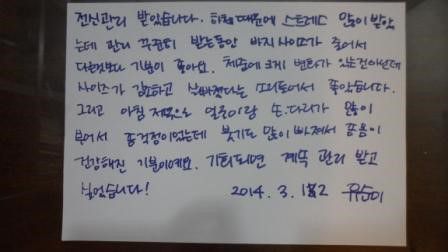 전신관리 받았습니다. 하체 때문에 스트레스 많이 받았
는데 관리 꾸준히 받는동안 바지 사이즈가 줄어서
다른것보다 기분이 좋아요. 체중에 크게 변화가 있는것아닌데
사이즈가 감소하고 살빠졌다는 소리 들어서 좋았습니다.
그리고 아침 저녁으로 얼굴이랑 손.다리가 많이
부어서 걱정이었는데 붓기도 많이 빠져서 몸이
건강해진 기분이에요. 기회되면 계속 관리 받고
싶었습니다!
2014. 3. 12